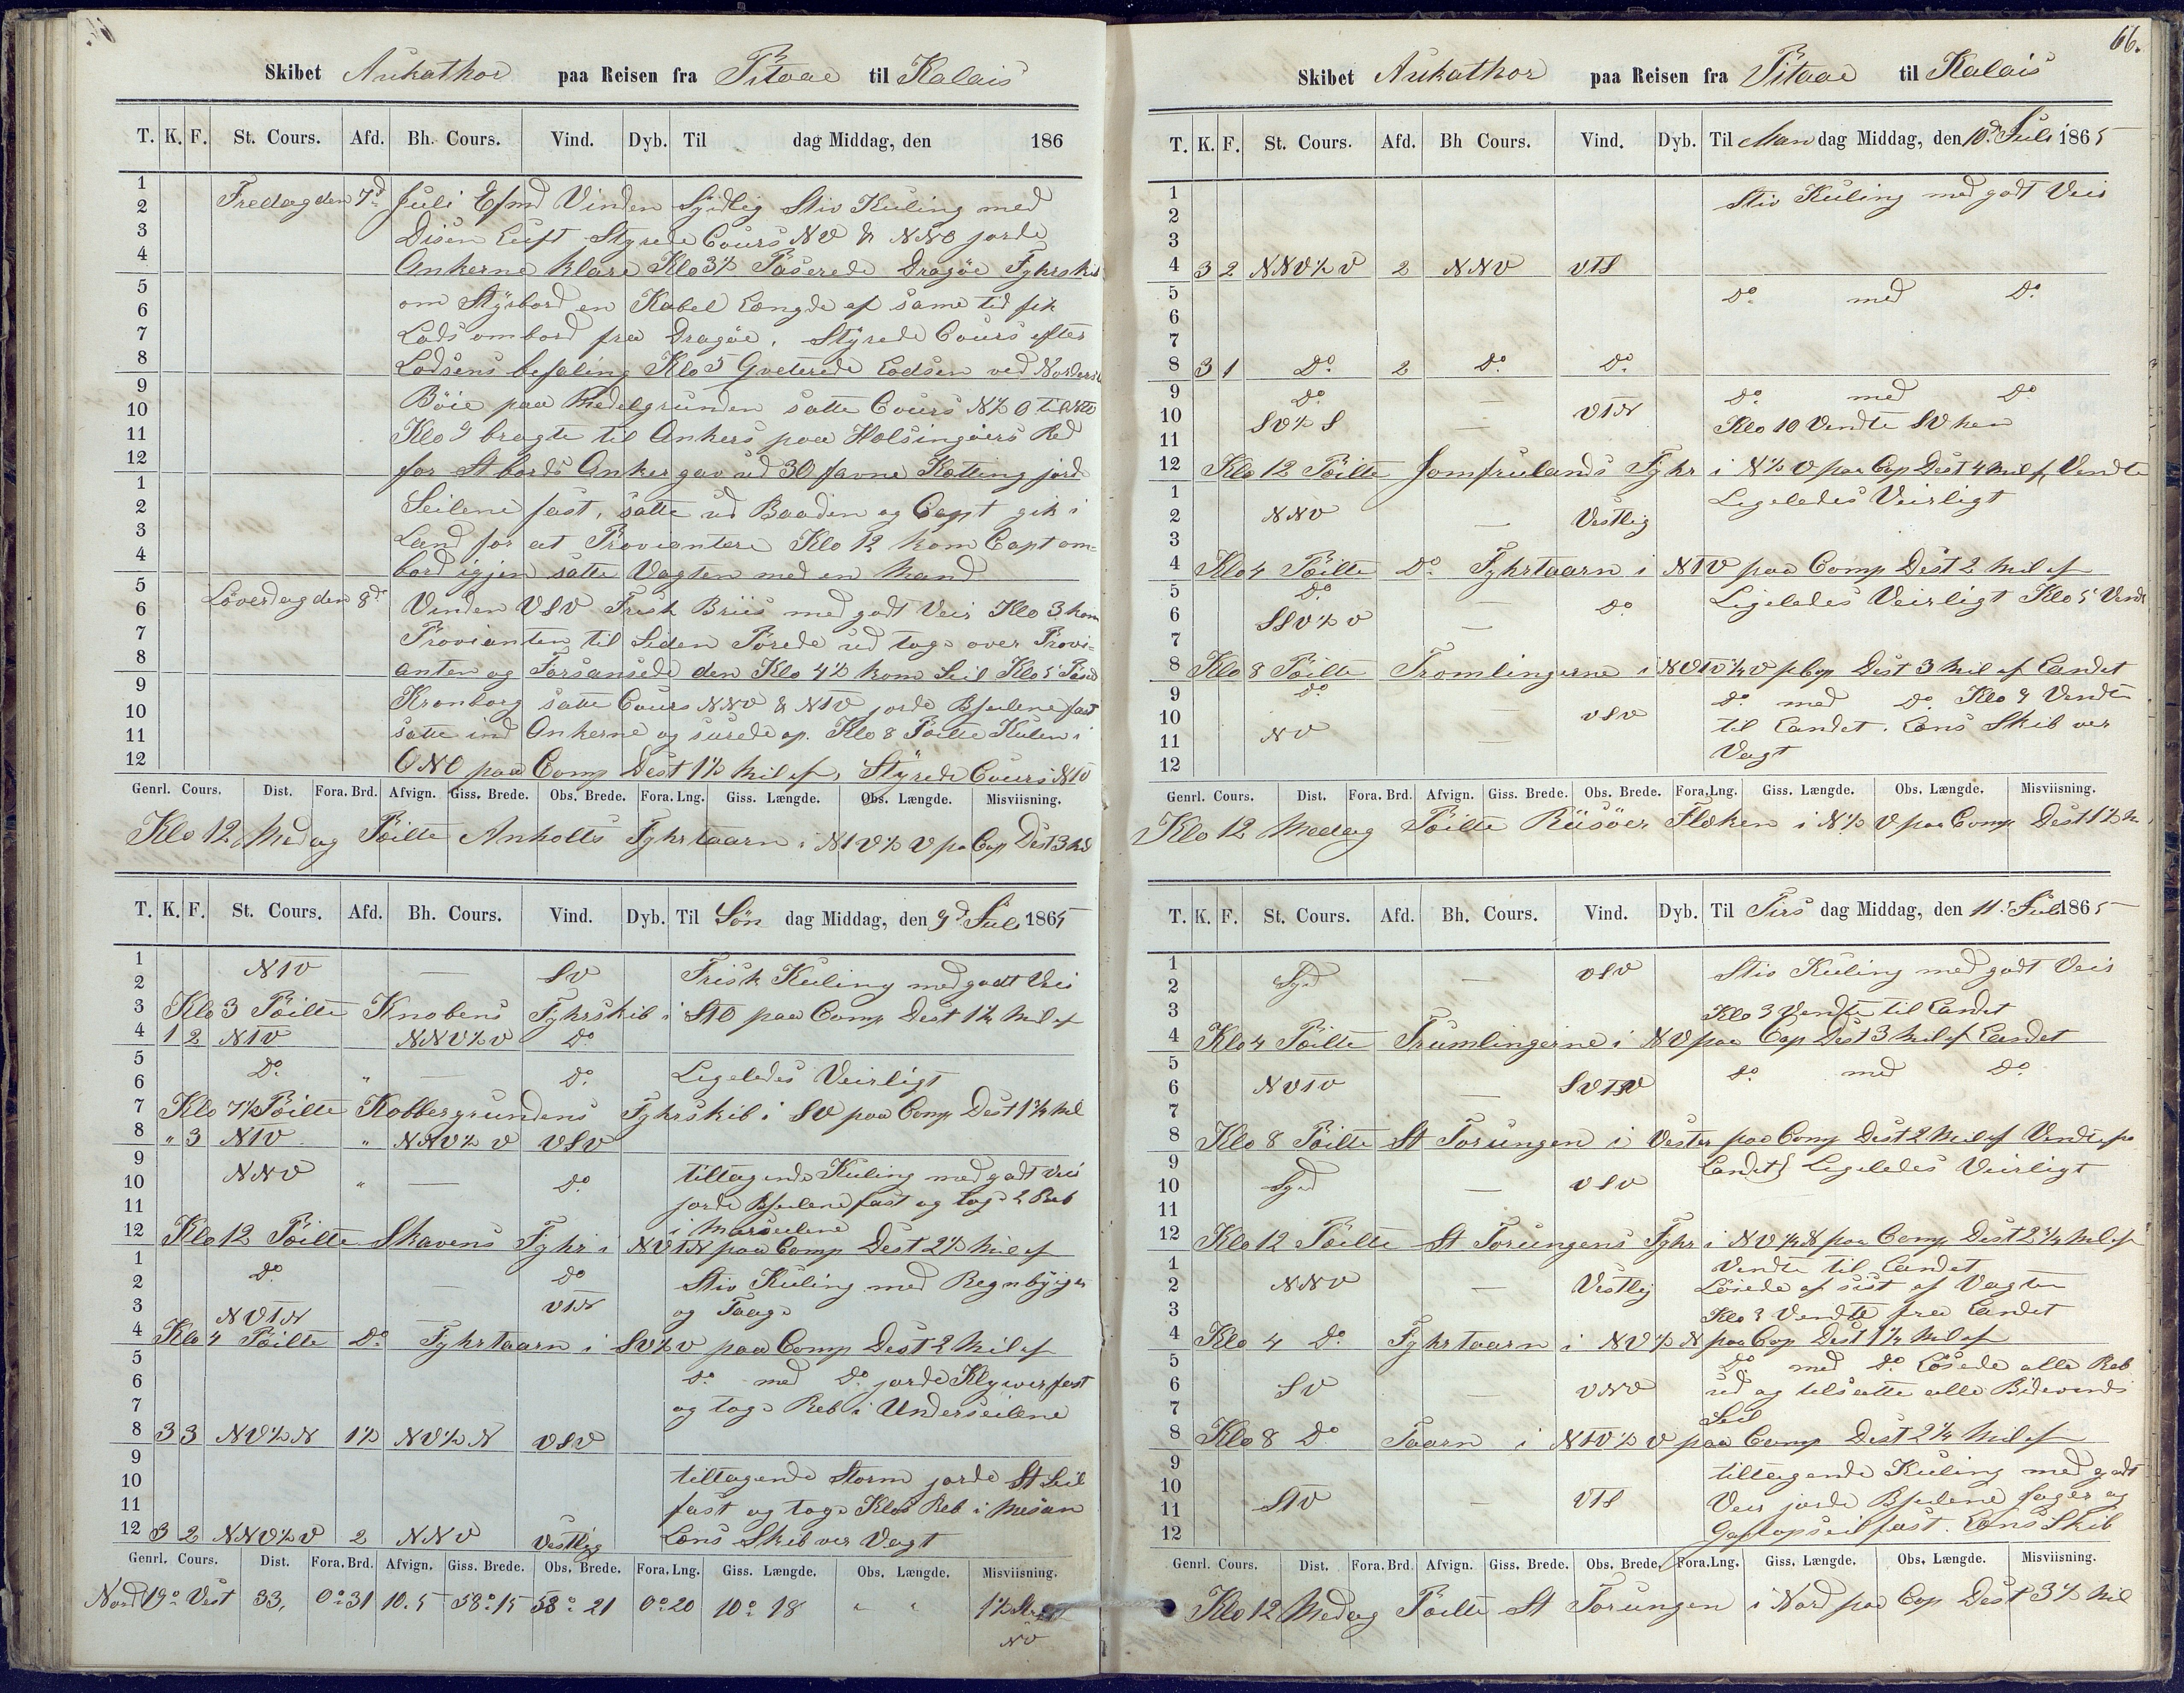 Skibet Aukathor paa Reisen fra Pitaae til Kalais
T. K. F. St. Cours. Afd. Bh. Cours. Vind. Dyb. Til dag Middag, den 186
1
2 Fredag den 7d Juli Efmd Vinden Sydlig Stiv Kuling med
3 Disen Luft Styrede Cours NV & NNO jorde
4 Ankerne klare Klo 3½ Paserede Dragöe Fyhrskib
5 om Styrbord en Kabel Længde af same tid fik
6
7 Lods ombord fra Dragöe. Styrede Cours efter
8 Lodsens befaling Klo 5 Qveterede Lodsen ved Nordre
9 Böie paa Medelgrunden satte Cours N½O til
10
11 Klo 9 bragte til Ankers paa Helsingöers Red
12 for St bords Anker gav ud 30 favne Ketting jord
1 Seilene fast, satte ud Baaden og Capt gik i
2
3 Land for at Proviantere Klo 12 kom Capt om=
4 bord igjen satte Vagten med en Mand
5 Löverdag den 8d Vinden VSV Frisk Briis med godt Veir Klo 3 kom
6
7 Provianten til Siden Förede ud tog over Provi=
8 anten og Forsansede den Klo 4½ kom Seil Klo 5 Pased
9 Kronborg satte Cours NNV & NTV jorde Bseilene fast
10
11 satte ind Ankerne og surede op. Klo 8 Pöilte Kulen i
12 ONO paa Comp Dest 1½ Mil af, Styrede Cours NTV
Genrl. Cours. Dist. Fora. Brd. Afvign. Giss. Brede. Obs. Brede. Fora. Lng. Giss. Længde. Obs. Længde. Misviisning.
Klo 12 Medag Pöilte Anholts Fyhrtaarn i NTV½V pa Cop Dest 3 Mil
T. K. F. St. Cours. Afd. Bh. Cours. Vind. Dyb. Til Sön dag Middag, den 9d Juli 1865
1 NTV — SV Frisk Kuling med godt Veir
2
3 Klo 3 Pöilte Knobens Fyhrskib i STO paa Comp Dest 1¼ Mil af
4 1 2 NTV NNV½V Do
5 Do " — Do Ligeledes Veirligt
6
7 Klo 7½ Pöilte Kobbergrundens Fyhrskib i SV paa Comp Dest 1¼ Mil
8 " 3 NTV " NNV½V VSV
9 NNV " — Do tiltagende Kuling med godt Veir
10 jorde Bseilene fast og tog 2 Reb
11 i Marseilene
12 Klo 12 Pöilte Skavens Fyhr i NVTN paa Comp Dest 2½ Mil af
1 Do — Do Stiv Kuling med Regnbyiger
2
3 NVTN VTN og Taage
4 Klo 4 Pöilte Do Fyhrtaarn i SV½V paa Comp Dest 2 Mil af
5 Do med Do jorde Klywer fast
6
7 og tog Reb i Underseilene
8 3 3 NV½N 1½ NV½N VSV
9 tiltagende Storm jorde St Seil
10
11 fast og tog Klos Reb i Mesan
12 3 2 NNV½V 2 NNV Vestlig Lens Skib ver Vagt
Genrl. Cours. Dist. Fora. Brd. Afvign. Giss. Brede. Obs. Brede. Fora. Lng. Giss. Længde. Obs. Længde. Misviisning.
Nord 19° Vest 33, 0°31 10.5 58°15 58°21 0°20 10°18 " " 1½ Streg
NV
66.
Skibet Aukathor paa Reisen fra Pitaae til Kalais
T. K. F. St. Cours. Afd. Bh Cours. Vind. Dyb. Til Man dag Middag, den 10d Juli 1865
1 Stiv Kuling med godt Veir
2
3
4 3 2 NNV½V 2 NNV VTS
5 Do med Do
6
7
8 3 1 Do 2 Do Do
9 Do — Do med Do
10 SV½S — VTN Klo 10 Vendte SV hen
11
12 Klo 12 Pöilte Jomfrulands Fyhr i N½V paa Cop Dest 4 Mil af, Vendte
1 Ligeledes Veirligt
2 NNV — Vestlig
3
4 Klo 4 Pöilte Do Fyhrtaarn i NTV paa Comp Dest 2 Mil af
5 Do — Do Ligeledes Veirligt Klo 5 Vendt
6 SSV½V —
7
8 Klo 8 Pöilte Tromlingerne i NVTV¼V p Cop Dest 3 Mil af Landet
9 Do Do med Do Klo 9 Vendte
10 — VSV til Landet. Lens Skib ver
11 NV — Vagt
12
Genrl. Cours. Dist. Fora. Brd. Afvign. Giss. Brede. Obs. Brede. Fora. Lng. Giss. Længde. Obs. Længde. Misviisning.
Klo 12 Medag Pöilte Riisöer Fleken i N½V paa Comp Dest 1½ M
T. K. F. St. Cours. Afd. Bh. Cours. Vind. Dyb. Til Tirs dag Middag, den 11 Juli 1865
1 Syd — VSV Stiv Kuling med godt Veir
2
3 Klo 3 Vendte til Landet
4 Klo 4 Pöilte Trumlingerne i NV paa Cop Dest 3 Mil af Landet
5 Do med Do
6 NVTV — SVTV
7
8 Klo 8 Pöilte St Torungen i Vester paa Comp Dest 2 Mil af Vendte fra
9 Landet Ligeledes Veirligt
10 Syd — VSV
11
12 Klo 12 Pöilte St Torungens Fyhr i NV¼N paa Comp Dest 2¼ Mil af
1 Vendte til Landet
2 NNV — Vestlig Löiede af sist af Vagten
3 Klo 3 Vendte fra Landet
4 Klo 4 Do Fyhrtaarn i NV½N paa Cop Dest 1¼ Mil af
5 Do med Do Lösede alle Reb
6 SV — VNV ud og tilsatte alle Bidevinds
7 Seil
8 Klo 8 Do Taarn i NTV½V paa Comp Dest 2¼ Mil af
9 tiltagende Kuling med godt
10
11 STV — VTS Veir jorde Bseilene Jager og
12 Gaftopseil fast. Lens Skib
Genrl. Cours. Dist. Fora. Brd. Afvign. Giss. Brede. Obs. Brede. Fora. Lng. Giss. Længde. Obs. Længde. Misviisning.
Klo 12 Medag Pöilte St Torungen i Nord paa Cop Dest 3½ Mil